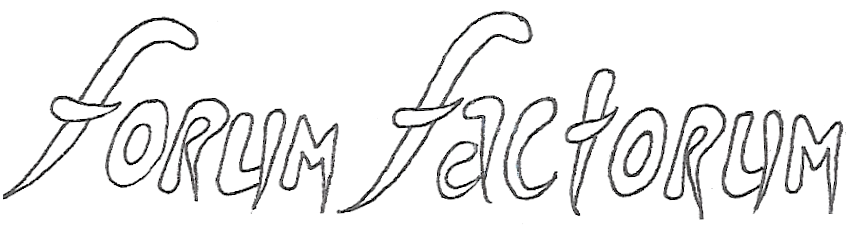 forum factorum